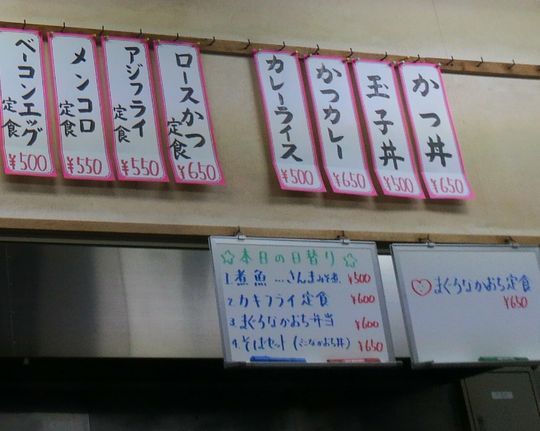 かつ丼
¥650
玉子丼
¥500
かつカレー
¥650
カレーライス
¥500
ロースかつ定食
¥650
アジフライ定食
¥550
メンコロ定食
¥550
ベーコンエッグ定食
¥500
☆本日の日替り☆
1. 煮魚…さんま煮 ¥500
2 カキフライ定食 ¥600
3 まぐろなかおち弁当 ¥600
4. そばセット(ミニなかおち丼) ¥650
♡まぐろなかおち定食
¥650